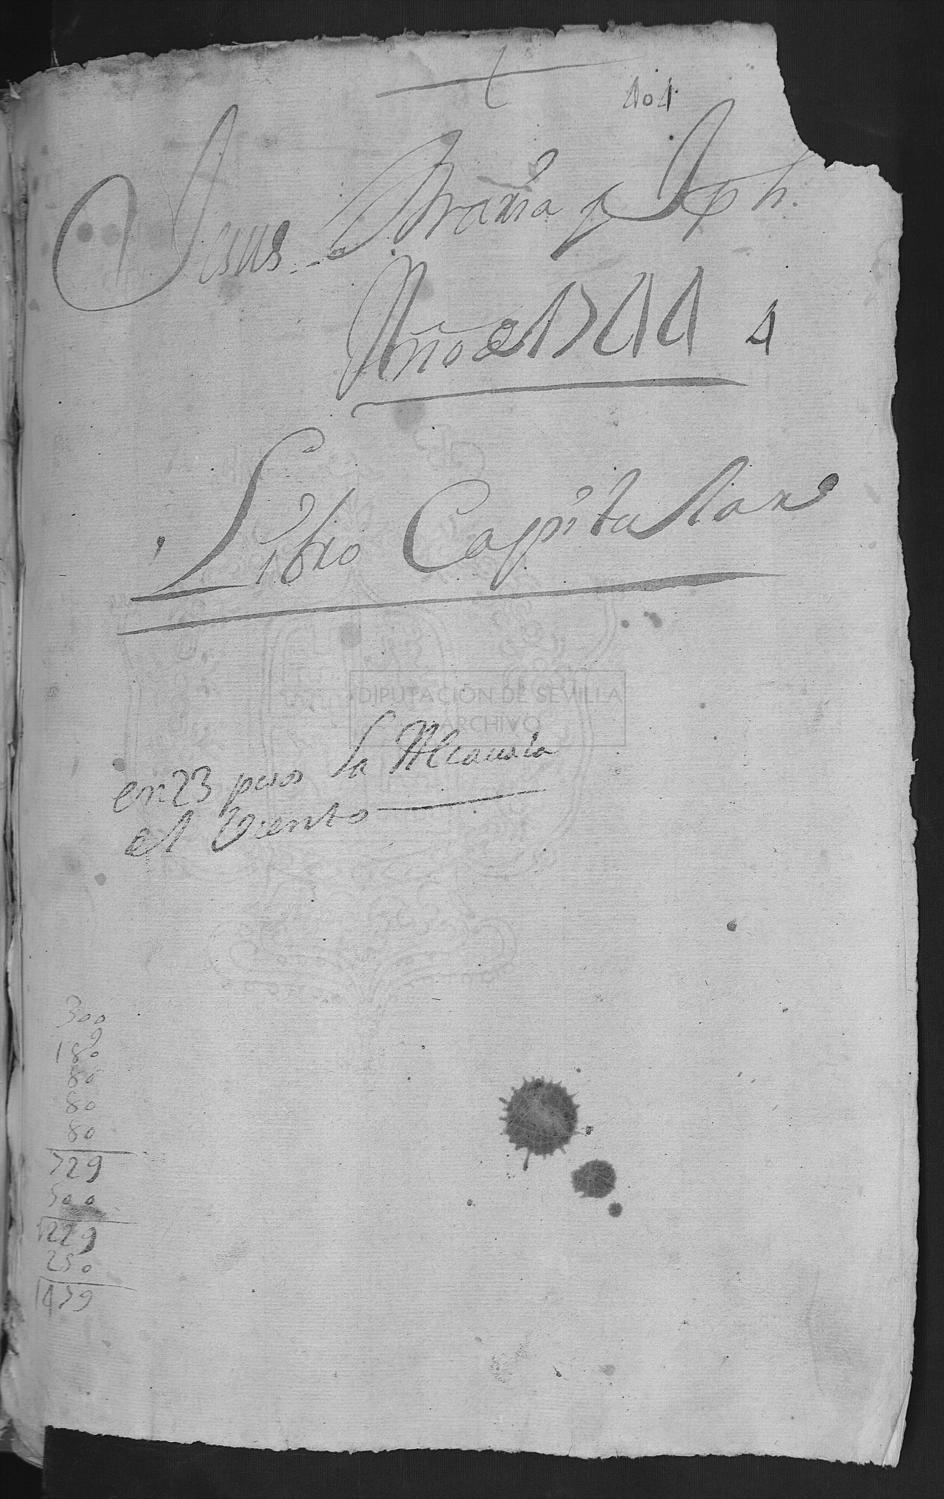 404
Jesus Maria y Jph.
Año de 1744 4
Libro Capitular
DIPUTACIÓN DE SEVILLA
ARCHIVO
en 23 pusº la Alcauala
del Viento
300
189
80
80
80
729
500
1229
250
1479